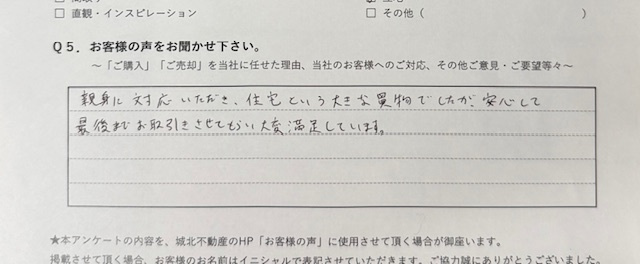 □ 直観・インスピレーション □ その他（ ）
Q５．お客様の声をお聞かせ下さい。
～「ご購入」「ご売却」を当社に任せた理由、当社のお客様へのご対応、その他ご意見・ご要望等々～
親身に対応いただき、住宅という大きな買物でしたが、安心して
最後までお取引きさせてもらい大変満足しています。
★本アンケートの内容を、城北不動産のHP「お客様の声」に使用させて頂く場合が御座います。
掲載させて頂く場合、お客様のお名前はイニシャルで表記させていただきます。ご協力誠にありがとうございました。